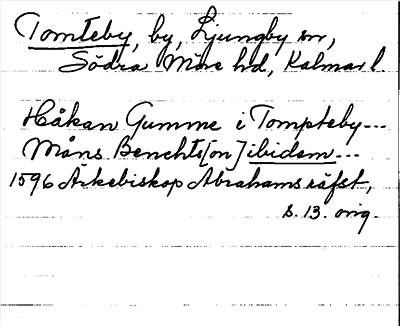 Tomteby, by, Ljungby sn,
Södra Möre hd, Kalmar l.
Håkan Gumme i Tompteby---
Måns Benchts[on] ibidem---
1596 Ärkebiskop Abrahams räfst,
s. 13. orig.